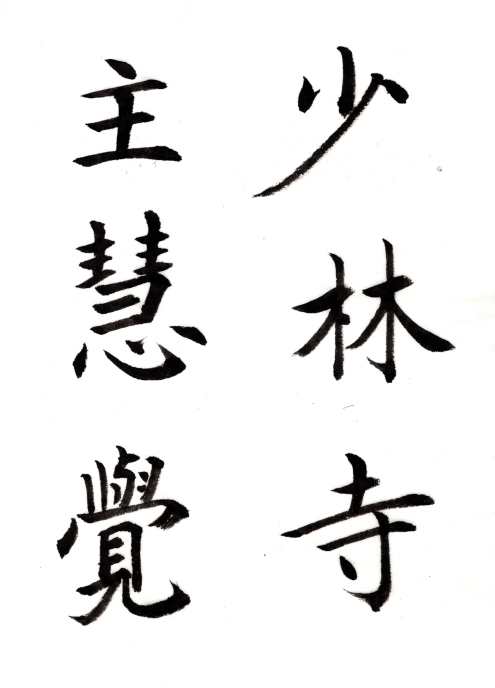 少林寺
主慧覺